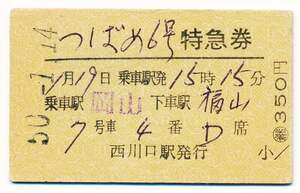 つばめ6号 特急券
1月19日 乗車駅発15時15分
乗車駅 岡山 下車駅 福山
7号車 4番D席
西川口駅発行
小
350円
50.-1.14